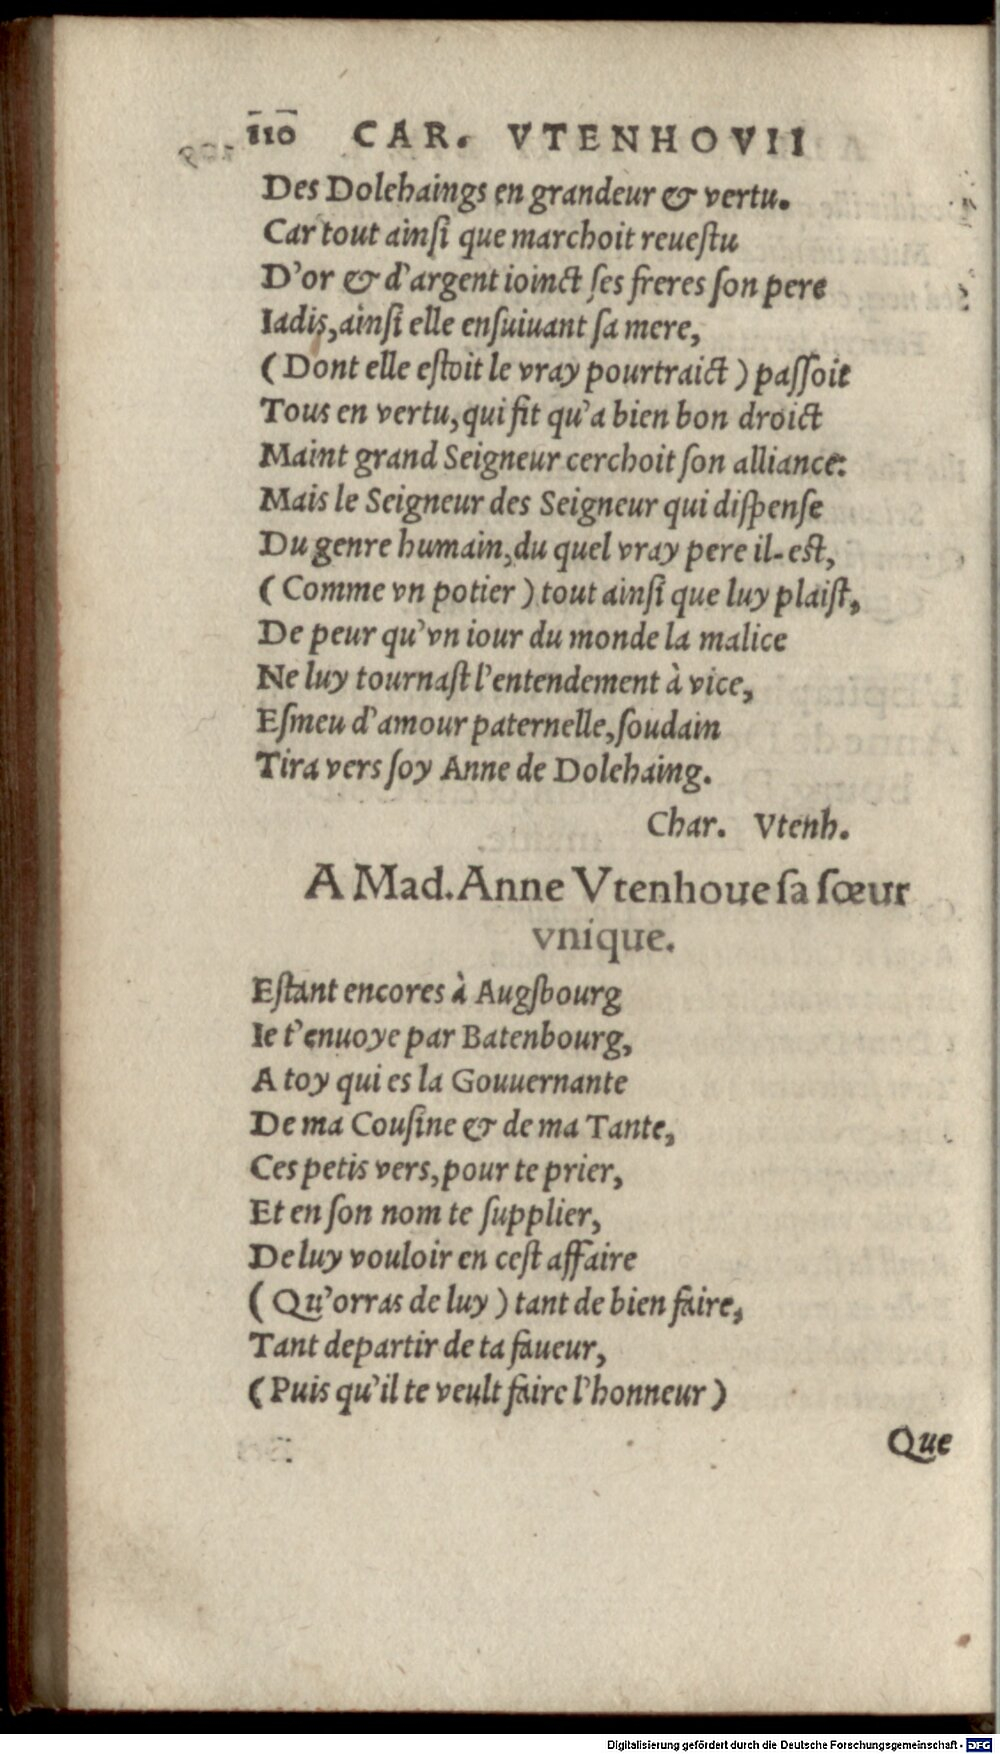 110 CAR. VTENHOVII
Des Dolehaings en grandeur & vertu.
Car tout ainſi que marchoit reueſtu
D'or & d'argent ioinct ſes freres ſon pere
Iadis, ainſi elle enſuiuant ſa mere,
(Dont elle eſtoit le vray pourtraict) paſſoit
Tous en vertu, qui fit qu'a bien bon droict
Maint grand Seigneur cerchoit ſon alliance:
Mais le Seigneur des Seigneur qui diſpenſe
Du genre humain, du quel vray pere il-eſt,
(Comme vn potier) tout ainſi que luy plaiſt,
De peur qu'vn iour du monde la malice
Ne luy tournaſt l'entendement à vice,
Eſmeu d'amour paternelle, ſoudain
Tira vers ſoy Anne de Dolehaing.
Char. Vtenh.
A Mad. Anne Vtenhoue ſa ſœur
vnique.
Eſtant encores à Augſbourg
Ie t'enuoye par Batenbourg,
A toy qui es la Gouuernante
De ma Couſine & de ma Tante,
Ces petis vers, pour te prier,
Et en ſon nom te ſupplier,
De luy vouloir en ceſt affaire
(Qu'orras de luy) tant de bien faire,
Tant departir de ta faueur,
(Puis qu'il te veult faire l'honneur)
Que
Digitalisierung gefördert durch die Deutsche Forschungsgemeinschaft - DFG